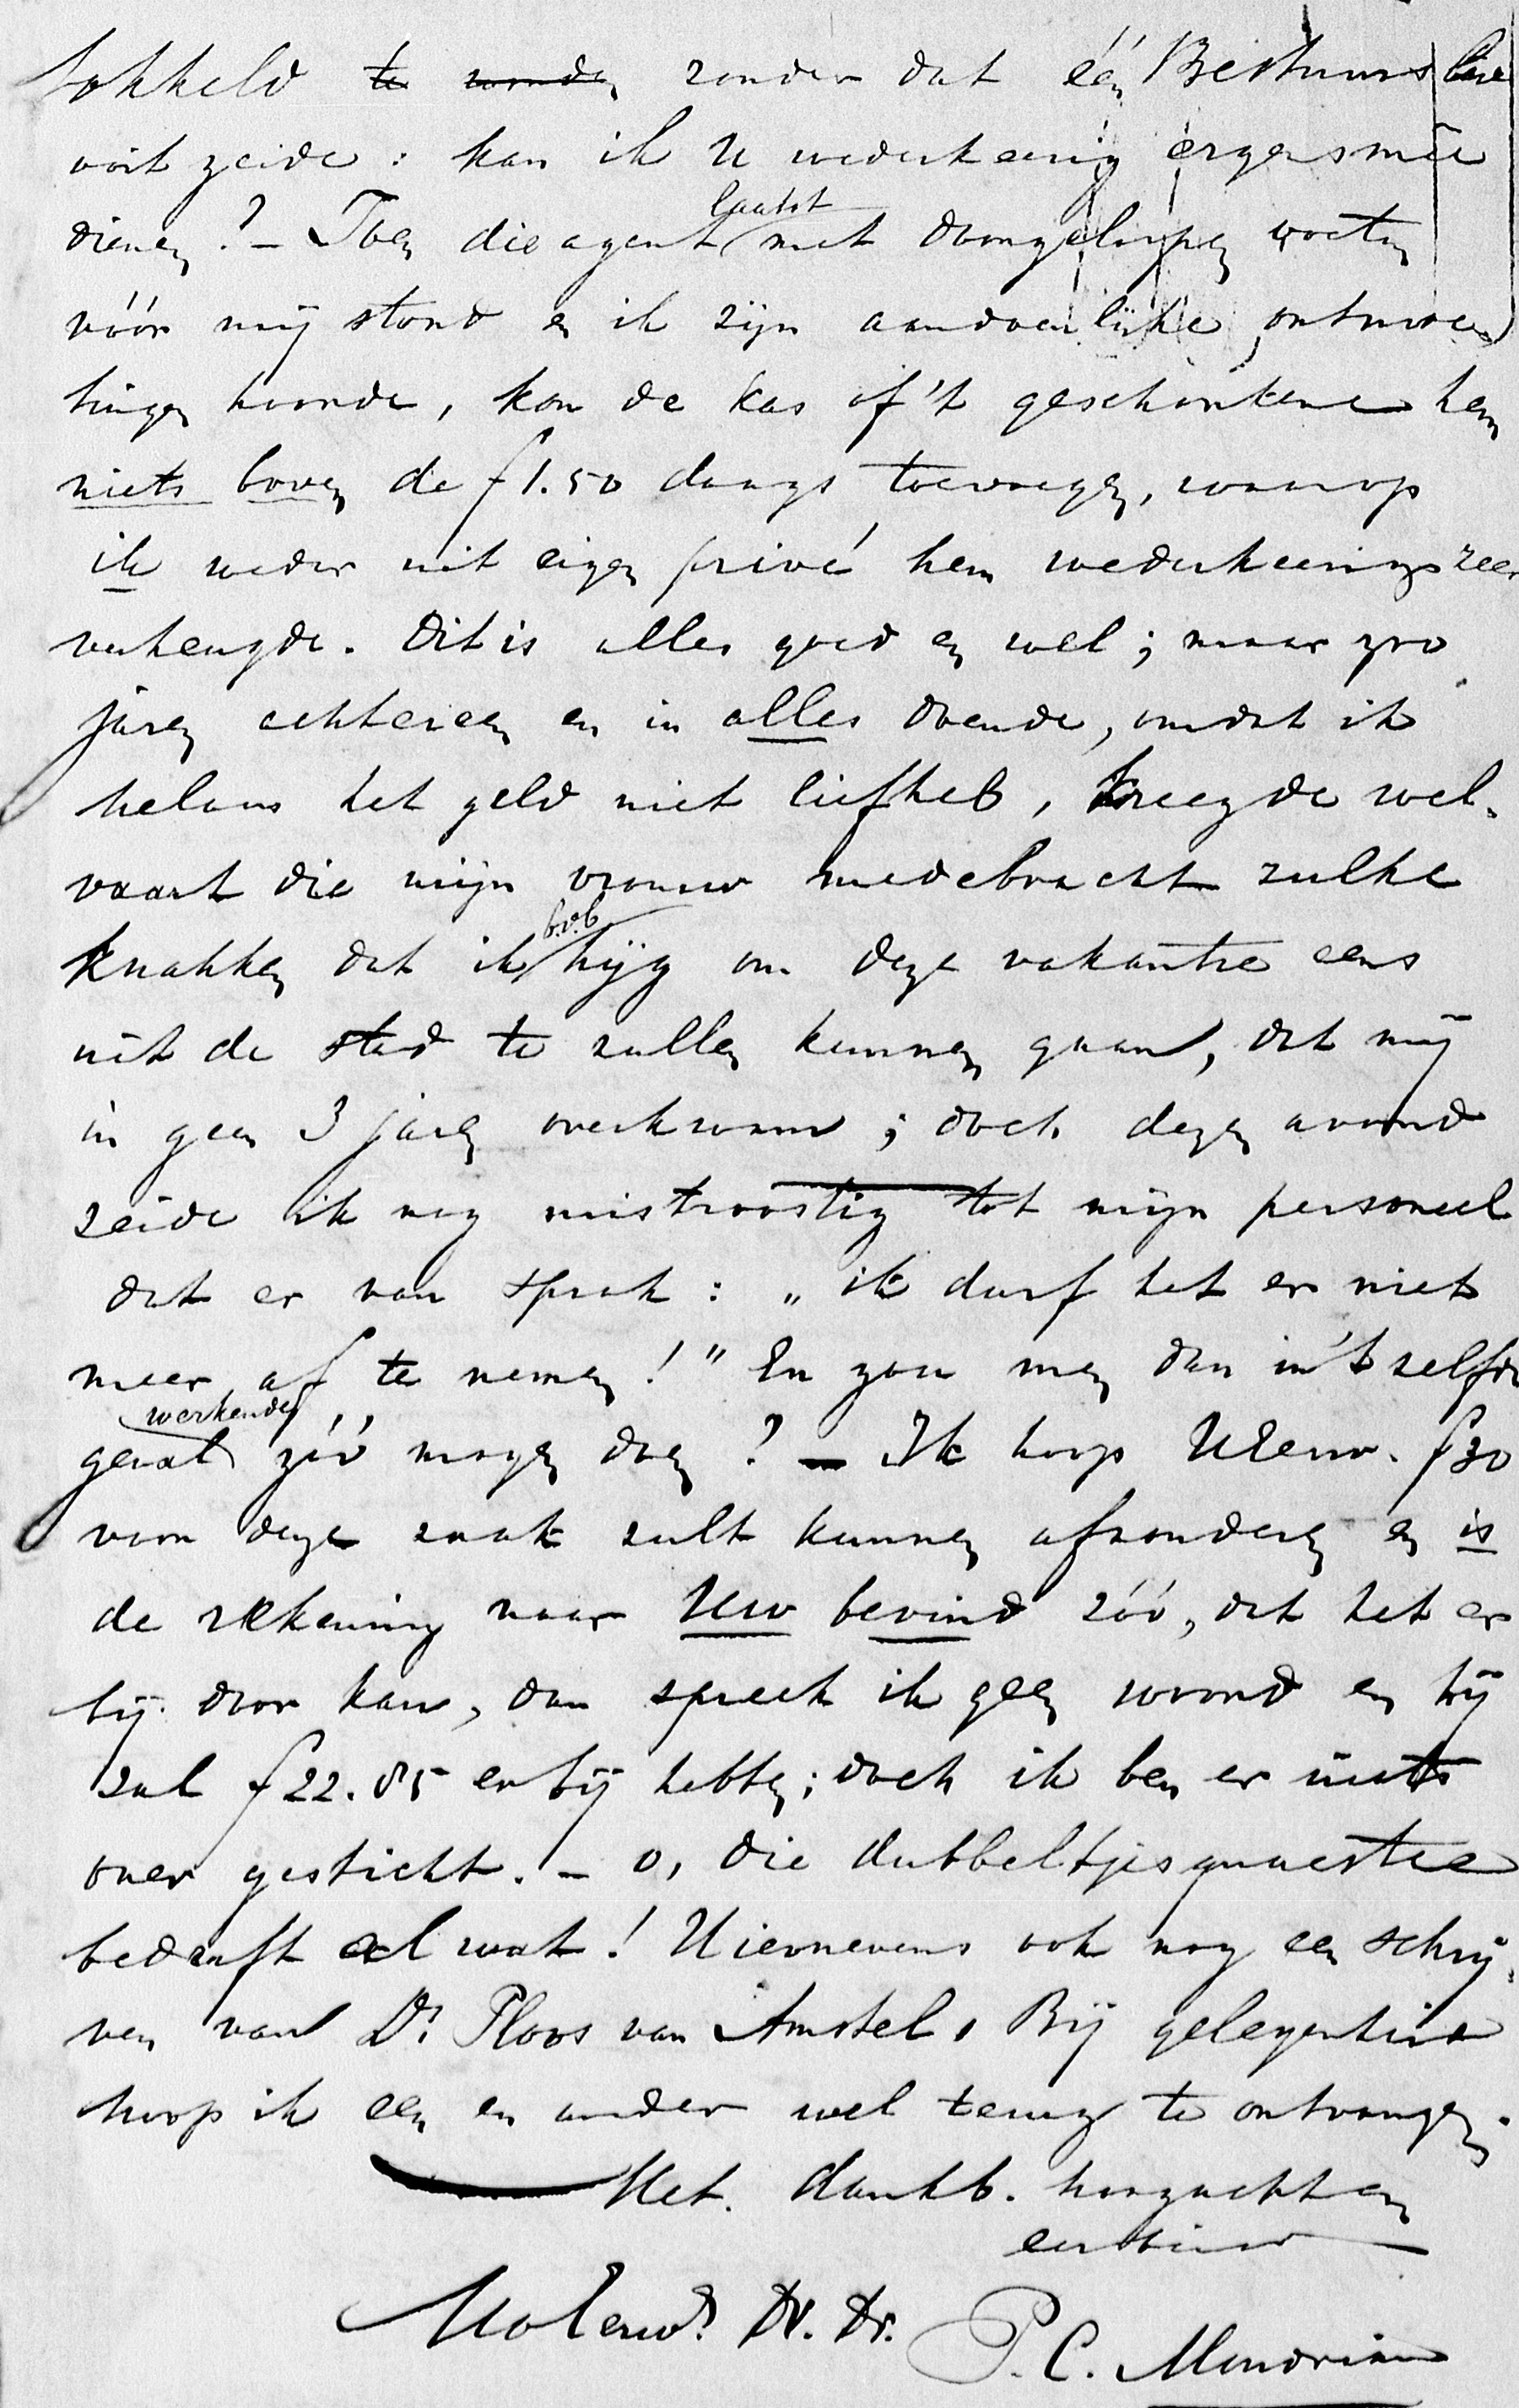 tokkeld te worden zonder dat één Bestuurslid
ooit zeide: kan ik U wederkeerig ergens meê
dienen? – Toen die agent laatst met doorgeloopen voeten
vóór mij stond en ik zijn aandoenlijke ontmoe
tingen hoorde, kon de kas of 't geschonkene hem
niets boven de f 1.50 daags toevoegen, waarop
ik weder uit eigen privé hem wederkeerig zeer
verheugde. Dit is alles goed en wel; maar zoo
jaren achtereen en in alles doende, omdat ik
helaas het geld niet liefheb, kreeg de wel-
vaart die mijn vrouw medebracht zulke
knakken dat ik b.v.b hijg om deze vakantie eens
uit de stad te zullen kunnen gaan, dat mij
in geen 3 jaren overkwam; doch dezen avond
zeide ik nog mistroostig tot mijn personeel
dat er van sprak: „ik durf het er niet
meer af te nemen!" En zou men dan in 't zelfde
geval werkende zóó mogen doen? – Ik hoop UEerw. f 30
voor deze zaak zult kunnen afzonderen en is
de rekening naar Uw bevind zóó, dat het er
bij door kan, dan spreek ik geen woord en hij
zal f 22.85 erbij hebben; doch ik ben er niets
over gesticht. – O, die dubbeltjesquaestie
bedruft al wat! Hiernevens ook nog een schrij-
ven van Dr. Ploos van Amstel. Bij gelegenheid
hoop ik een en ander wel terug te ontvangen.
Met dankb. hoogachting
UwEerw. Dv. Dr.
P. C. Mondriaan